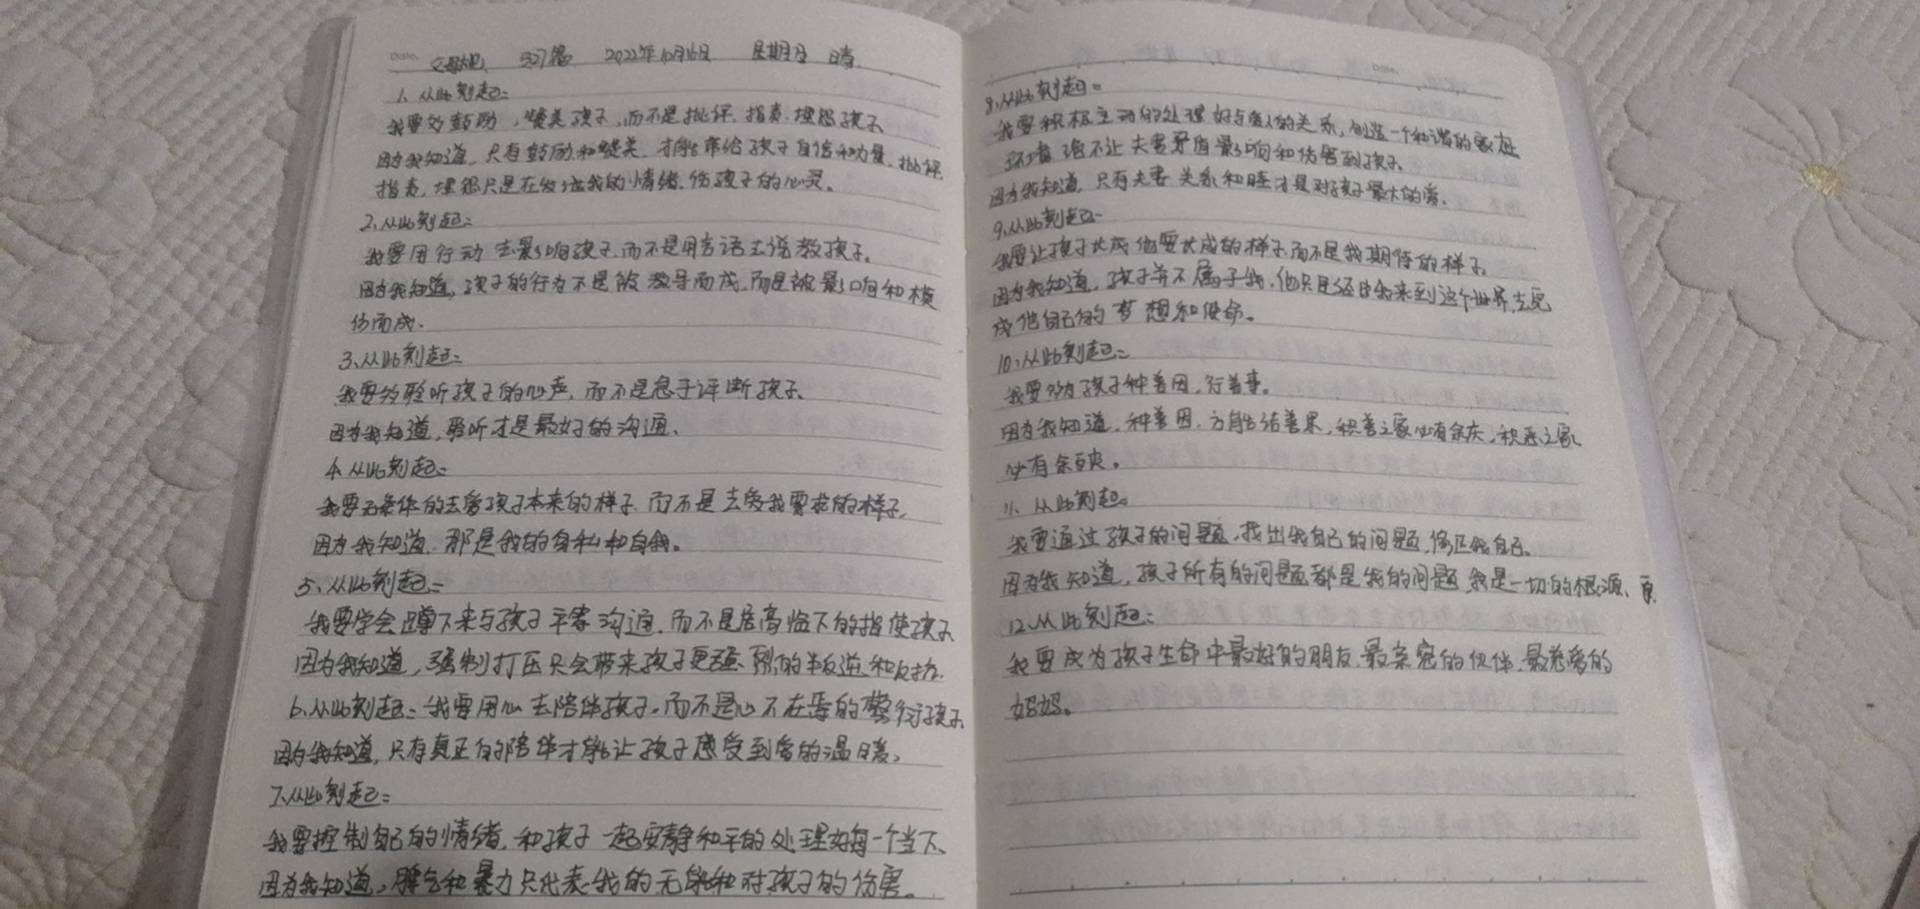 父母规 习篇 2022年10月16日 星期日 晴
1、从此刻起：
我要多鼓励，赞美孩子，而不是批评、指责、埋怨孩子
因为我知道，只有鼓励和赞美，才能带给孩子自信和力量，批评、
指责，埋怨只是在发泄我的情绪，伤孩子的心灵。
2、从此刻起：
我要用行动去影响孩子，而不是用言语去说教孩子。
因为我知道，孩子的行为不是被教导而成，而是被影响和模
仿而成。
3、从此刻起：
我要多聆听孩子的心声，而不是急于评断孩子、
因为我知道，聆听才是最好的沟通、
4、从此刻起：
我要无条件的去爱孩子本来的样子，而不是去爱我要求的样子，
因为我知道，那是我的自私和自我。
5、从此刻起：
我要学会蹲下来与孩子平等沟通，而不是居高临下的指使孩子
因为我知道，强制打压只会带来孩子更强烈的叛逆和反抗、
6、从此刻起：我要用心去陪伴孩子，而不是心不在焉的敷衍孩子
因为我知道，只有真正的陪伴才能让孩子感受到爱的温暖，
7、从此刻起：
我要控制自己的情绪，和孩子一起安静和平的处理好每一个当下、
因为我知道，脾气和暴力只代表我的无能和对孩子的伤害。
8、从此刻起：
我要积极主动的处理好与爱人的关系，创造一个和谐的家庭
环境，绝不让夫妻矛盾影响和伤害到孩子、
因为我知道，只有夫妻关系和睦才是对孩子最大的爱、
9、从此刻起：
我要让孩子长成他要长成的样子而不是我期待的样子、
因为我知道，孩子并不属于我，他只是经由我来到这个世界，去完
成他自己的梦想和使命。
10、从此刻起：
我要多为孩子种善因，行善事。
因为我知道，种善因，方能结善果，积善之家必有余庆，积恶之家
必有余殃。
11、从此刻起：
我要通过孩子的问题，找出我自己的问题，修正我自己、
因为我知道，孩子所有的问题都是我的问题，我是一切的根源、
12、从此刻起：
我要成为孩子生命中最好的朋友，最亲密的伙伴，最慈爱的
妈妈。